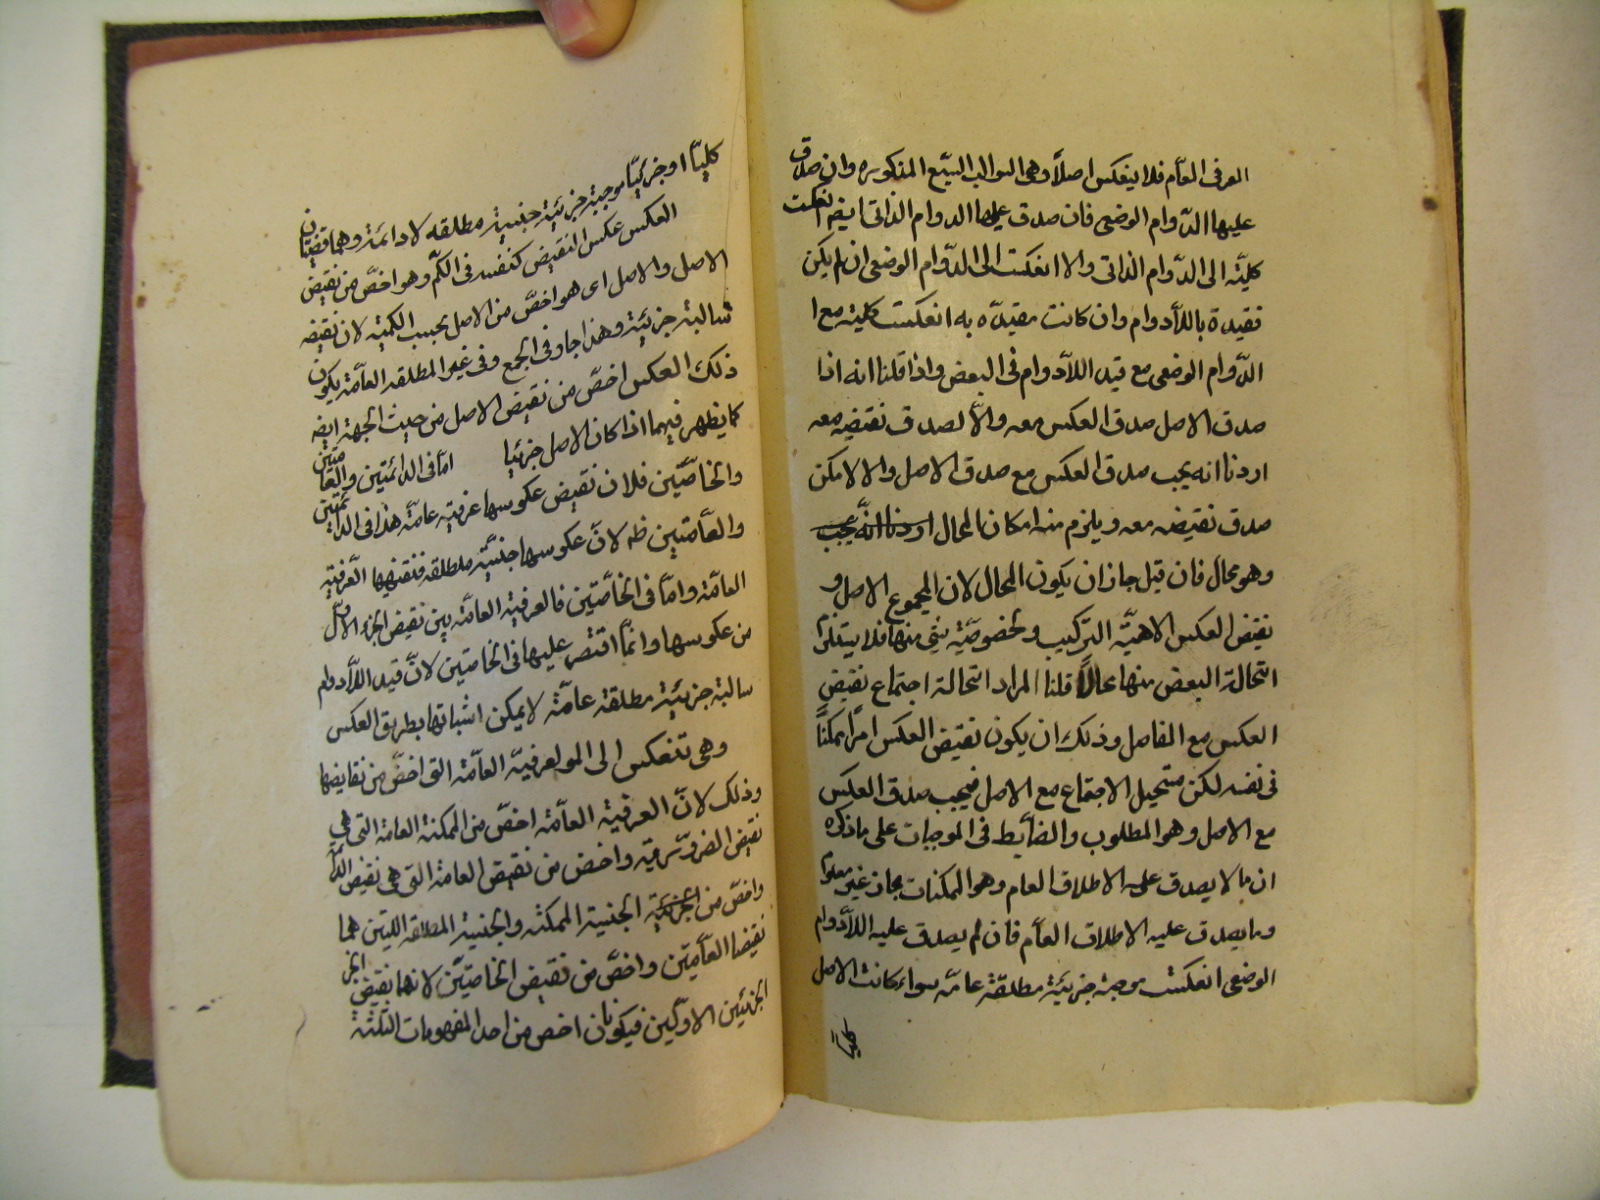 العرفى العاّم فلا ينعكس اصلاً وهى السوالب السبّع المذكوره وان صدق
عليها الدّوام الوضعى فان صدق عليها الدوام الذاتى ايضم انعكست
كليّه الى الدّوام الذاتى والا انعكست الى الدّوام الوضعى ان لم يكن
مقيدة باللاّدوام وان كانت مقيدّه به انعكست كلية مع ا
الدّوام الوضعى مع قيد اللاّدوام فى البعض واذا قلنا انه اذا
صدق الاصل صدق العكس معه والاّ لصدق نقيضه معه
اردنا انه يجب صدق العكس مع صدق الاصل والا لامكن
صدق نقيضه معه ويلزم منه امكان المحال اردنا انّه يجب
وهو محال فان قيل جاز ان يكون المحال لان المجموع الاصل و
نقيض العكس لا هيّه التركيب و لخصوصيّة شئ منها فلا يستلزم
استحالة البعض منها محالاً قلنا المراد استحالة اجتماع نقيض
العكس مع الفاصل وذلك ان يكون نقيض العكس امرًا ممكنًا
فى نفسه لكن مستحيل الاجتماع مع الاصل فيجب صدق العكس
مع الاصل وهو المطلوب والضابط فى الموجبات على ما ذكره
ان ما لا يصدق عليه الاطلاق العام وهو الممكنات مجاز غير معلوم
وما يصدق عليه الاطلاق العاّم فان لم يصدق عليه اللاّدوام
الوضعى انعكست موجبة جزئية مطلقة عامّه سواء كانت الاصل
كليّا
كليّا او جزئيّا موجبة جزئية حينية مطلقه لا دائمة وهما قضيتان
العكس عكس النقيض كنفسه فى الكم وهو اخصّ من نقيض
الاصل والاصل اى هو اخصّ من الاصل بحسب الكمية لان نقيضه
سالبة جزئية وهذا جاو فى الجمع وفى غير المطلقه العاّمة يكون
ذلك العكس اخصّ من نقيض الاصل من حيث الجهة ايضه
كما يظهر فيما اذا كان الاصل جزئيا امّا فى الدائمتين والعامتين
والخاصّتين فلان نقيض عكوسها عرفيّه عامّه هذا فى الدائمتين
والعاّمتين ظه لانّ عكوسها حينيّة مطلقه فنقيضها العرفية
العامّة وامّا فى الخاصّتين فالعرفية العامّة بين نقيض الجزء الاول
من عكوسها وانمّا اقتصر عليها فى الخاصتين لانّ قيد اللاّدوام
سالبة جزئية مطلقة عامّة لا يمكن اثباتها بطريق العكس
وهى تنعكس الى العرفيّة العاّمة التى اخصّ من نقايضها
وذلك لانّ العرفية العاّمة اخصّ من الممكنة العامة التى هى
نقيض الضروريّة واخص من نقيض العامة التى هى نقيض
واخصّ من الحينية الممكنه والحينية المطلقه اللتين هما
نقيضا العاّمتين واخصّ من نقيض الخاصتين لانها نقيض
الجزئين الاوّلين فيكونان اخص من احد المفهومات الثلثة